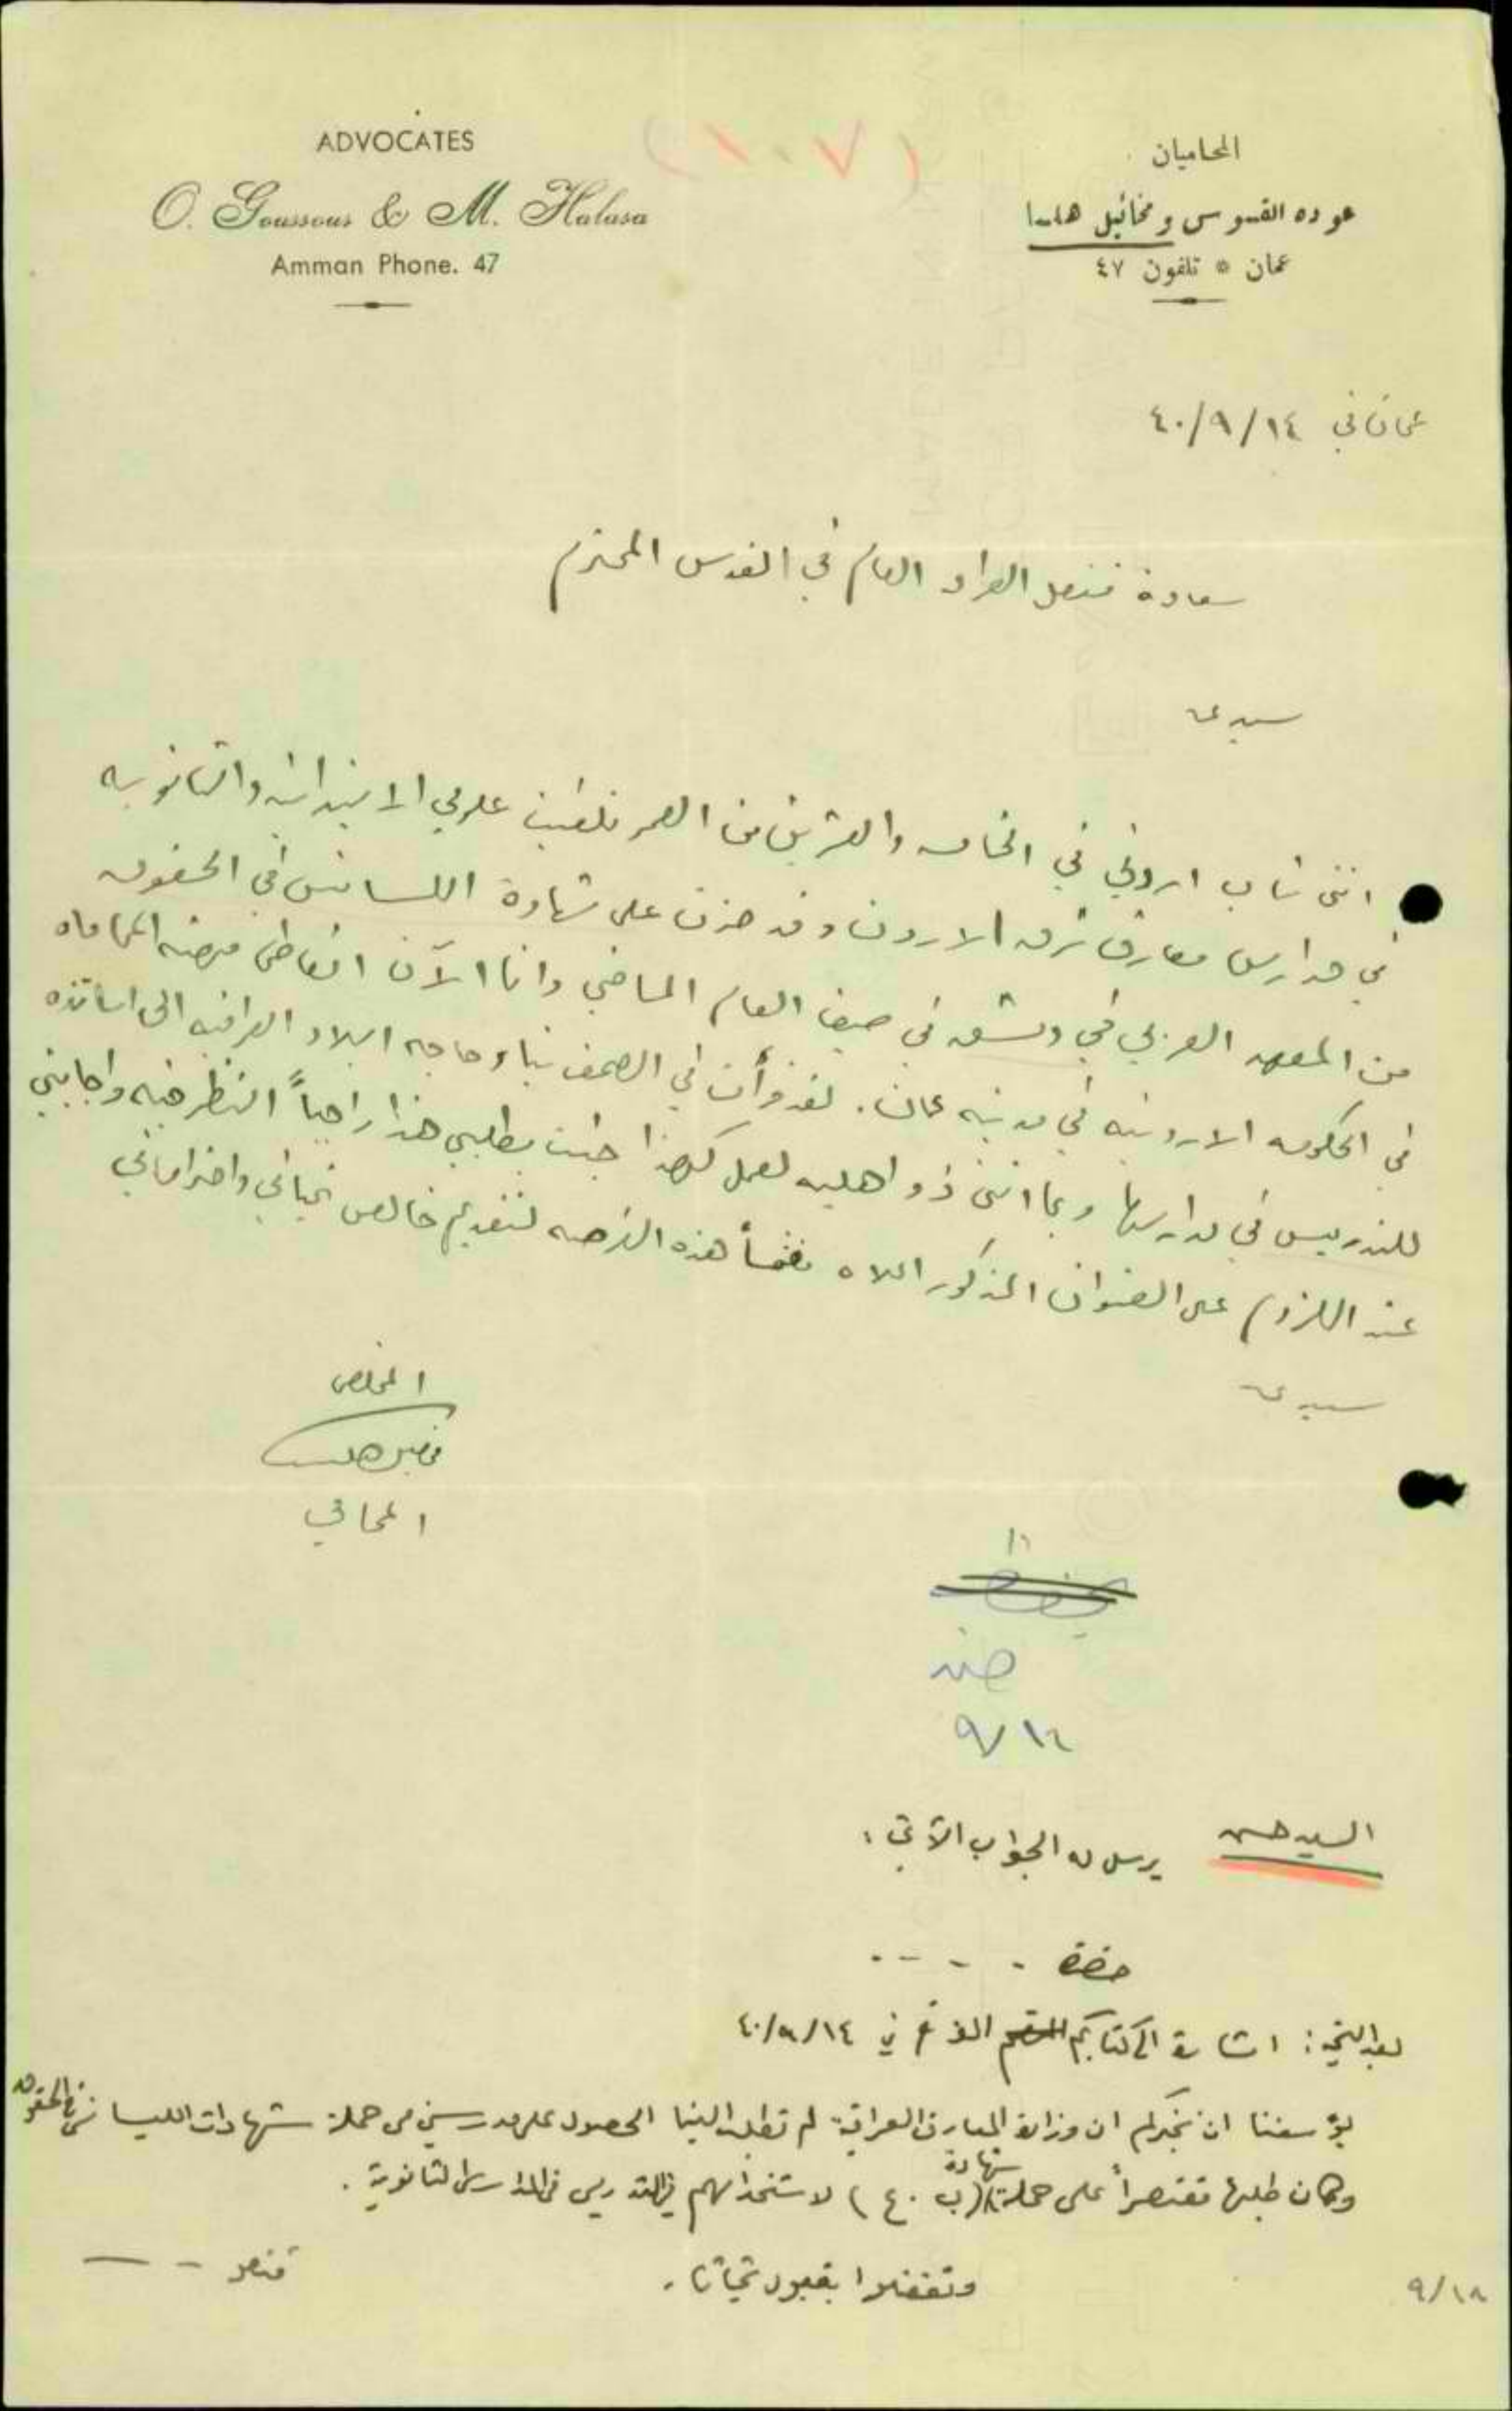 ADVOCATES
O. Goussous & M. Halasa
Amman Phone. 47
المحاميان
عوده القسوس و مخائيل هلسا
عمان * تلفون ٤٧
(١٠٧)
عمان في ٤٠/٩/١٤
سعادة قنصل العراق العام في القدس المحترم
سيدي
انني شاب اردني في الخامسه والعشرين من العمر تلقيت علومي الابتدائيه والثانويه
في مدارس معارف شرق الاردن وقد حزت على شهادة اللسانس في الحقوق
من المعهد العربي في دمشق في صيف العام الماضي وانا الآن اتعاطى مهنه المحاماه
في الحكومه الاردنيه في مدينه عمان. لقد قرأت في الصحف نبأ حاجه البلاد العراقيه الى اساتذه
للتدريس في مدارسها وبما انني ذو اهليه لعمل كهذا جئت بطلبي هذا راجياً النظر فيه واجابتي
عند اللزوم على العنوان المذكور اعلاه مغتنماً هذه الفرصه لتقديم خالص تحياتي واحتراماتي
سيدي
المخلص
هلسا
المحامي
يحفظ
٩/١٦
السيد حسن يرسل له الجواب الآتي :
حضرة - - - -
بعد التحية : اشارة الى كتابكم المؤرخ في ٤٠/٩/١٤
يؤسفنا ان نخبركم ان وزارة المعارف العراقية لم تطلب الينا الحصول على مدرسين من حملة شهادات الليسانس في الحقوق
وكان طلبها مقتصراً على حملة شهادة (ب . ع) لاستخدامهم في التدريس في المدارس الثانوية .
وتفضلوا بقبول تحياتنا .
قنصل - —
٩/١٨